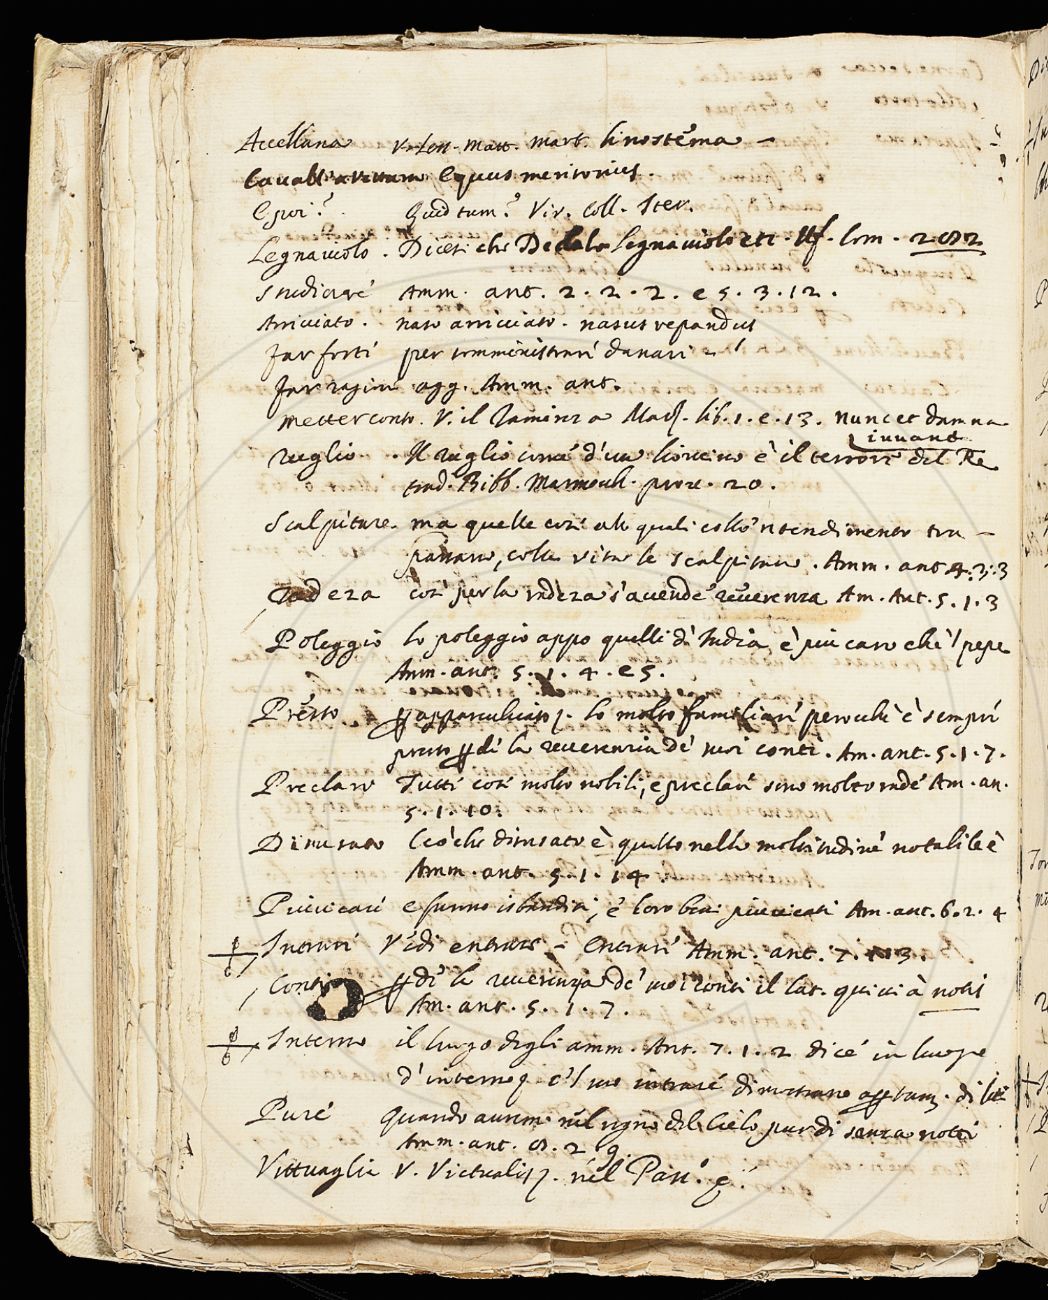 Accellana V. Len. Matt. Mart. linostema –
Cavallo a vettura Equus meritorius.
E poi? Quid tum? Vir. Coll. Ster.
Legnaiolo. Dicesi che Dedalo legnaiolo etc. Com. 282
Studiare Amm. ant. 2. 2. 2. e 5. 3. 12.
Arriciato. naso arricciato. nasus repandus
Far forti per somministrari danari –
Far ragion agg. Amm. ant.
Metter conto. V. il lib. 1. e. 13. nunc et damna
iuvant
ruglio. Il ruglio come d'un lioncino è il terrore del Re
trad. Bibb. prov. 20.
Scalpitare. ma quelle cose allo quali collo 'ntendimento tra–
passano, colla vita le scalpitano. Amm. ant 4. 3. 3
radeza così per la radeza s'avende reverenza Am. Ant. 5. 1. 3
Poleggio lo poleggio appo quelli d'India, è piu caro che 'l pepe
Amm. ant. 5. 1. 4. e 5.
Presto apparechiato. Lo molto famigliari perochè è sempri
presto di la reverenzia de' suoi conti. Am. ant. 5. 1. 7.
Preclaro Tutti cosi molto nobili, e preclari sono molto rade Am. an.
5. 1. 10.
Disusato Ciò che disusato è quello nella moltitudine notabile è
Amm. ant. 5. 1. 14.
Piuvicari e funno isbanditi, e loro beni piuvicati Am. ant. 6. 2. 4
Intrari Vedi entrare – Entrari Amm. ant. 7. 1. 3.
Conti di la reverenza de' suoi conti il lat. quivi à nobis
Am. ant. 5. 1. 7.
Interno il luogo degli amm. Ant. 7. 1. 2 dice in luogo
d'interno e 'l suo intrare dimostrano di
Pure quando avemo nel regno del Cielo pur di senza notti
Amm. ant. 8. 2 9.
Vittuaglie V. Victualis. nel Pan.